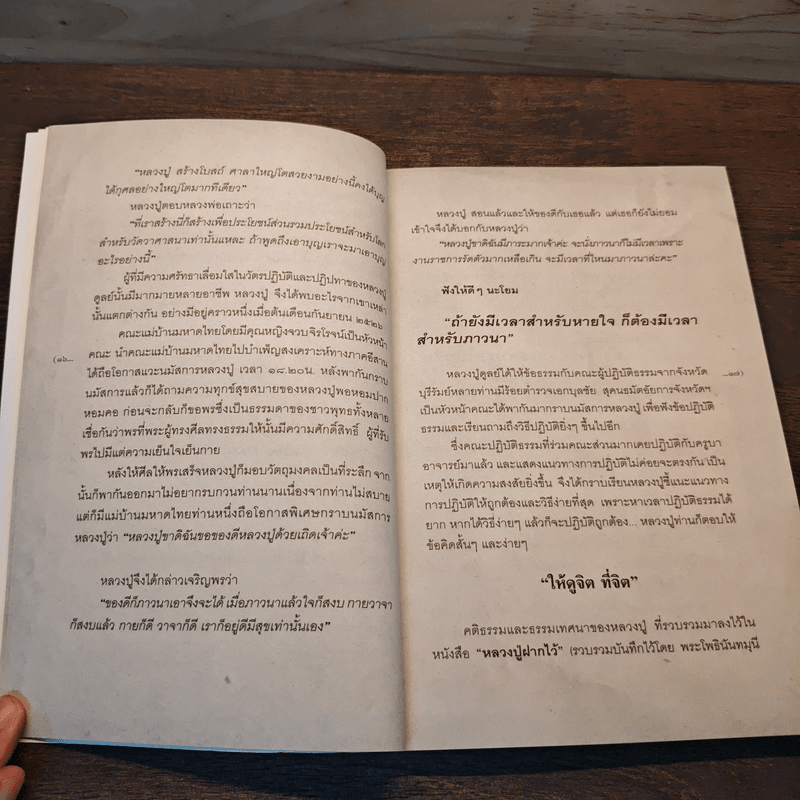 "หลวงปู่ สร้างโบสถ์ ศาลาใหญ่โตสวยงามอย่างนี้คงได้บุญ
ได้กุศลอย่างใหญ่โตมากทีเดียว"
หลวงปู่ตอบหลวงพ่อเถาะว่า
"ที่เราสร้างนี่ก็สร้างเพื่อประโยชน์ส่วนรวมประโยชน์สำหรับโลก
สำหรับวัดวาศาสนาเท่านั้นแหละ ถ้าพูดถึงเอาบุญเราจะมาเอาบุญ
อะไรอย่างนี้"
ผู้ที่มีความศรัทธาเลื่อมใสในวัตรปฏิบัติและปฏิปทาของหลวงปู่
ดูลย์นั้นมีมากมายหลายอาชีพ หลวงปู่ จึงได้พบอะไรจากเขาเหล่า
นั้นแตกต่างกัน อย่างมีอยู่คราวหนึ่งเมื่อต้นเดือนกันยายน ๒๕๒๖
คณะแม่บ้านมหาดไทยโดยมีคุณหญิงจวบจิรโรจน์เป็นหัวหน้า
คณะ นำคณะแม่บ้านมหาดไทยไปบำเพ็ญสงเคราะห์ทางภาคอีสาน
ได้ถือโอกาสแวะนมัสการหลวงปู่ เวลา ๑๘.๒๐น. หลังพากันกราบ
นมัสการแล้วก็ได้ถามความทุกข์สุขสบายของหลวงปู่พอหอมปาก
หอมคอ ก่อนจะกลับก็ขอพรซึ่งเป็นธรรมดาของชาวพุทธทั้งหลาย
เชื่อกันว่าพรที่พระผู้ทรงศีลทรงธรรมให้นั้นมีความศักดิ์สิทธิ์ ผู้ที่รับ
พรไปมีแต่ความเย็นใจเย็นกาย
หลังให้ศีลให้พรเสร็จหลวงปู่ก็มอบวัตถุมงคลเป็นที่ระลึก จาก
นั้นก็พากันออกมาไม่อยากรบกวนท่านนานเนื่องจากท่านไม่สบาย
แต่ก็มีแม่บ้านมหาดไทยท่านหนึ่งถือโอกาสพิเศษกราบนมัสการ
หลวงปู่ว่า "หลวงปู่ขาดิฉันขอของดีหลวงปู่ด้วยเถิดเจ้าค่ะ"
หลวงปู่จึงได้กล่าวเจริญพรว่า
"ของดีก็ภาวนาเอาจึงจะได้ เมื่อภาวนาแล้วใจก็สงบ กายวาจา
ก็สงบแล้ว กายก็ดี วาจาก็ดี เราก็อยู่ดีมีสุขเท่านั้นเอง"
(๑๖...
หลวงปู่ สอนแล้วและให้ของดีกับเธอแล้ว แต่เธอก็ยังไม่ยอม
เข้าใจจึงได้บอกกับหลวงปู่ว่า
"หลวงปู่ขาดิฉันมีภาระมากเจ้าค่ะ จะนั่งภาวนาก็ไม่มีเวลาเพราะ
งานราชการรัดตัวมากเหลือเกิน จะมีเวลาที่ไหนมาภาวนาล่ะคะ"
ฟังให้ดีๆ นะโยม
"ถ้ายังมีเวลาสำหรับหายใจ ก็ต้องมีเวลา
สำหรับภาวนา"
หลวงปู่ดูลย์ได้ให้ข้อธรรมกับคณะผู้ปฏิบัติธรรมจากจังหวัด
บุรีรัมย์หลายท่านมีร้อยตำรวจเอกบุลชัย สุคนธมัตอัยการจังหวัดฯ
เป็นหัวหน้าคณะได้พากันมากราบนมัสการหลวงปู่ เพื่อฟังข้อปฏิบัติ
ธรรมและเรียนถามถึงวิธีปฏิบัติยิ่งๆ ขึ้นไปอีก
ซึ่งคณะปฏิบัติธรรมที่ร่วมคณะส่วนมากเคยปฏิบัติกับครูบา
อาจารย์มาแล้ว และแสดงแนวทางการปฏิบัติไม่ค่อยจะตรงกันเป็น
เหตุให้เกิดความสงสัยยิ่งขึ้น จึงได้กราบเรียนหลวงปู่ชี้แนะแนวทาง
การปฏิบัติให้ถูกต้องและวิธีง่ายที่สุด เพราะหาเวลาปฏิบัติธรรมได้
ยาก หากได้วิธีง่ายๆ แล้วก็จะปฏิบัติถูกต้อง... หลวงปู่ท่านก็ตอบให้
ข้อคิดสั้นๆ และง่ายๆ
"ให้ดูจิต ที่จิต"
คติธรรมและธรรมเทศนาของหลวงปู่ ที่รวบรวมมาลงไว้ใน
หนังสือ "หลวงปู่ฝากไว้" (รวบรวมบันทึกไว้โดย พระโพธินันทมุนี
...๑๗)